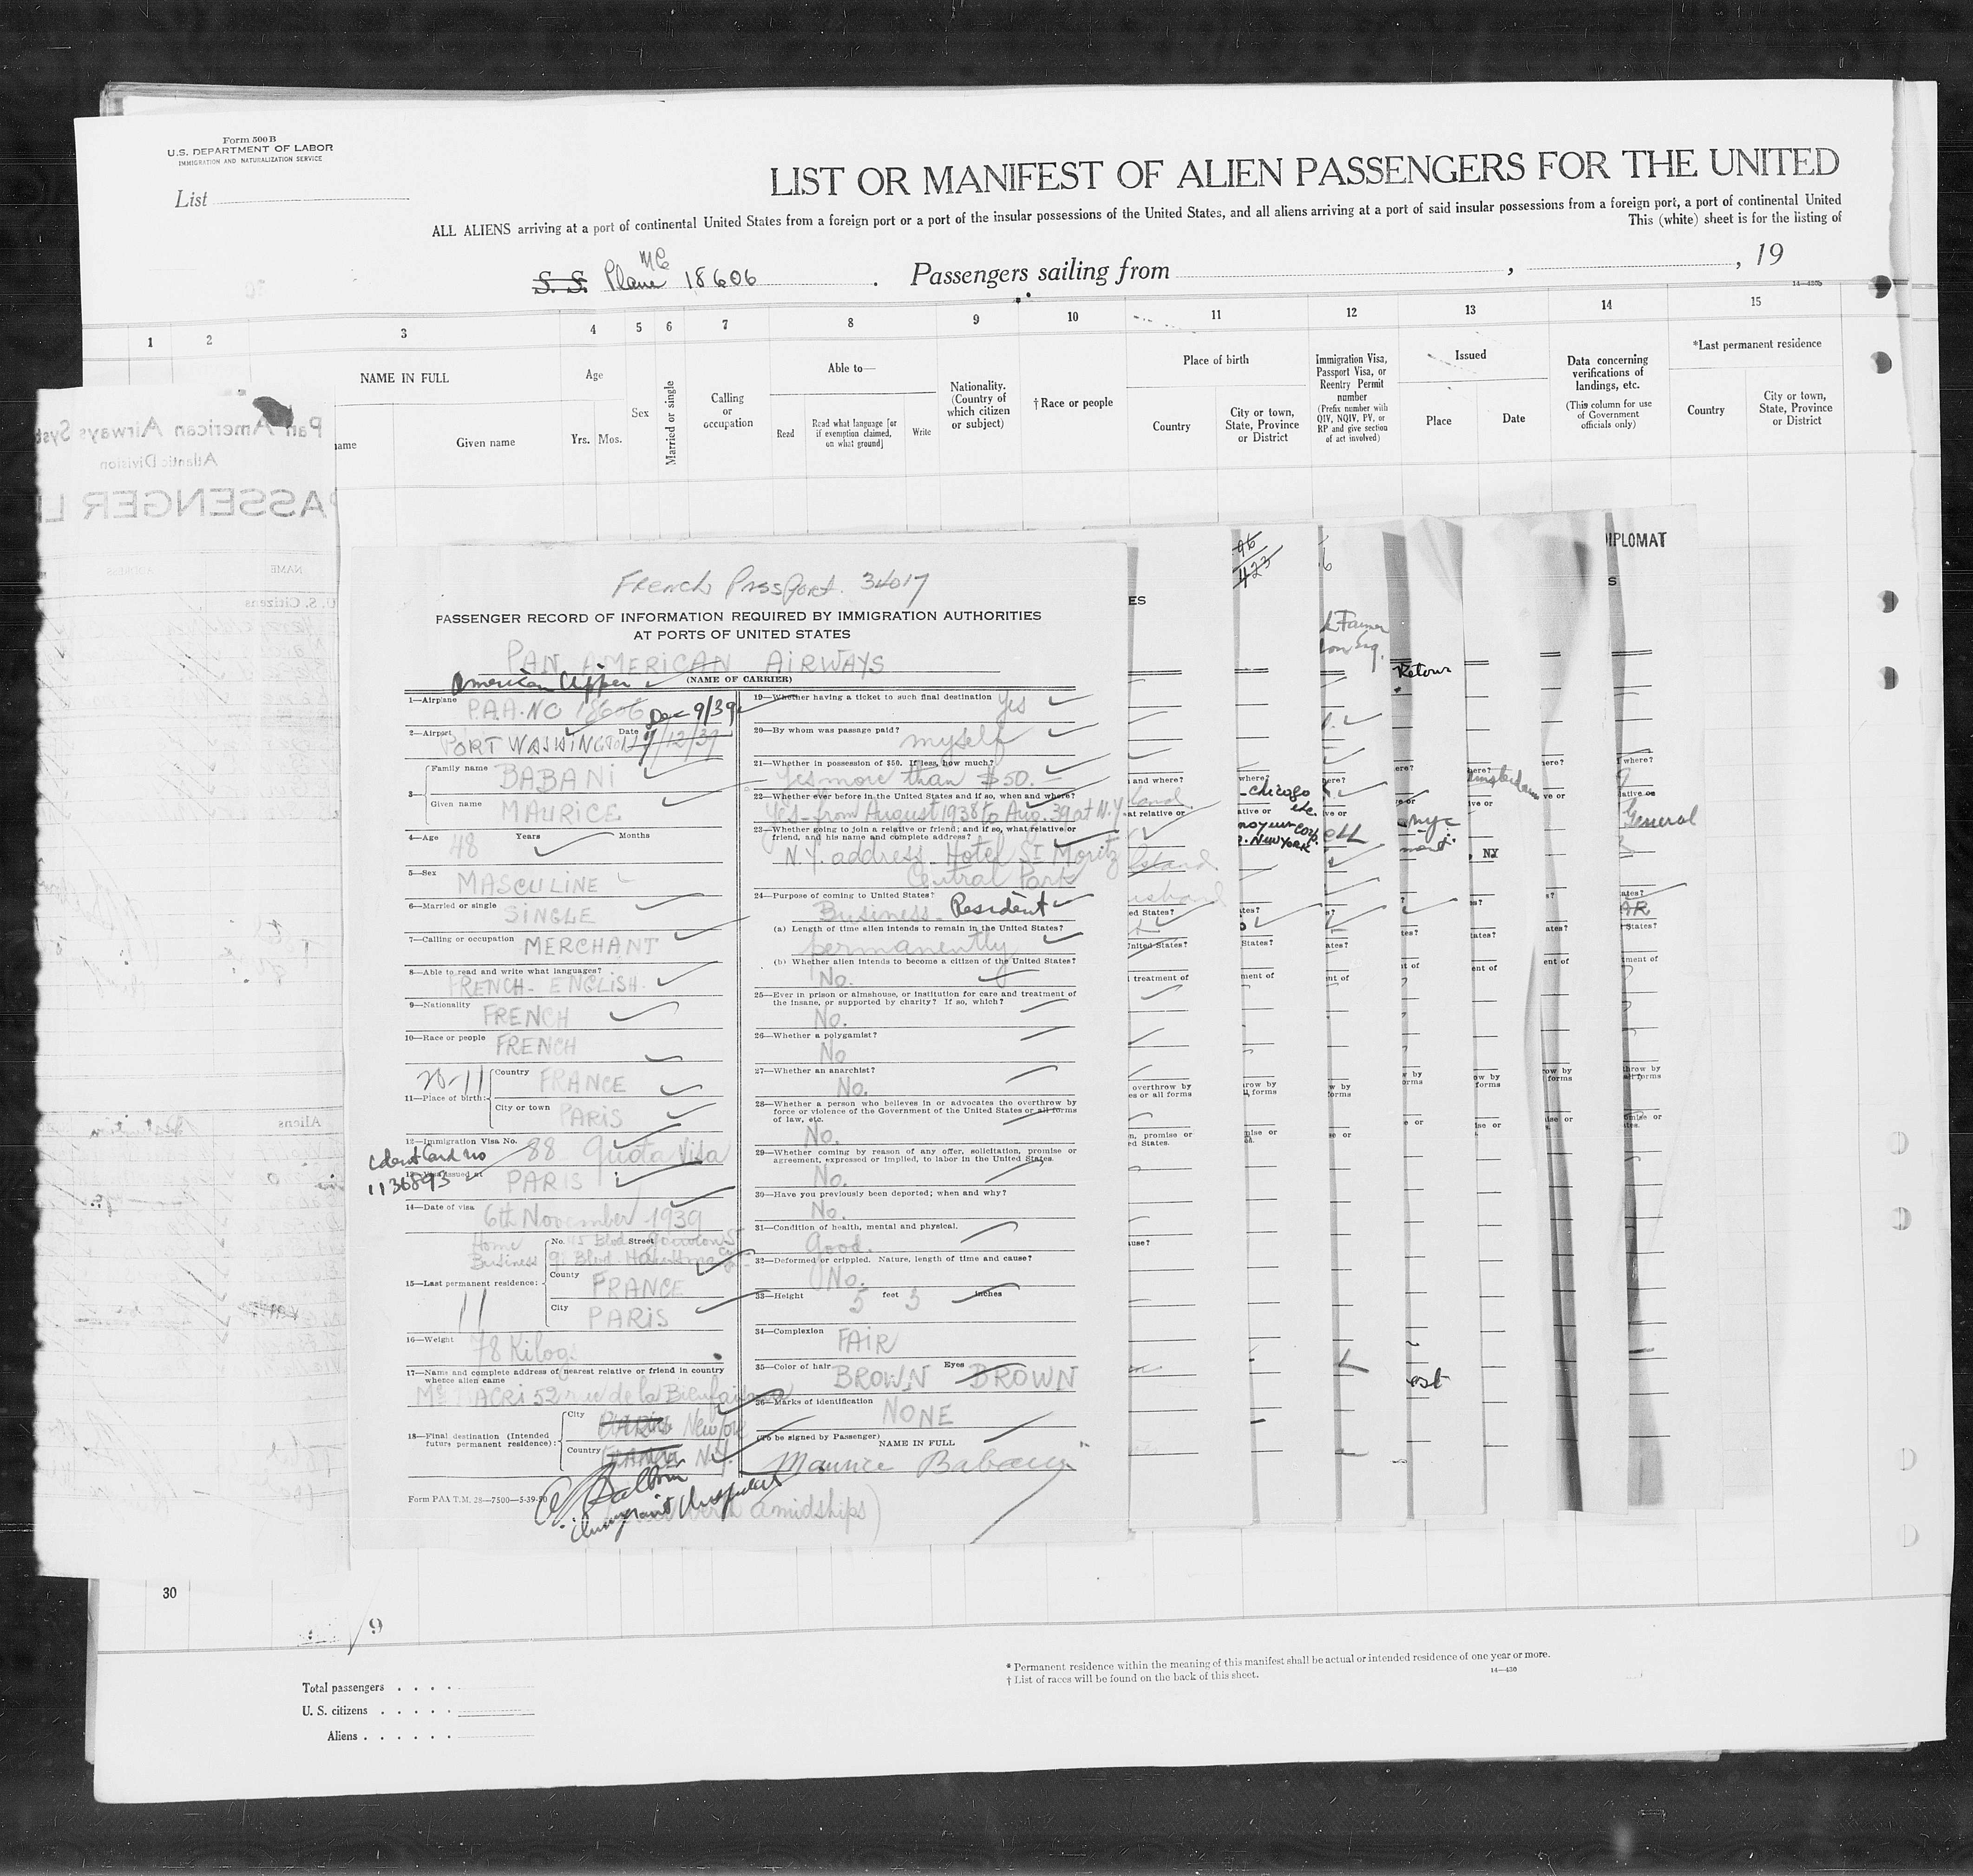 Form 500 B
U.S. DEPARTMENT OF LABOR
IMMIGRATION AND NATURALIZATION SERVICE
List
LIST OR MANIFEST OF ALIEN PASSENGERS FOR THE UNITED
ALL ALIENS arriving at a port of continental United States from a foreign port or a port of the insular possessions of the United States, and all aliens arriving at a port of said insular possessions from a foreign port, a port of continental United
This (white) sheet is for the listing of
S. S. Plane NC 18606 . Passengers sailing from , , 19
14—430b
1 2 3 4 5 6 7 8 9 10 11 12 13 14 15
NAME IN FULL
Given name
Age
Yrs. Mos.
Sex
Married or single
Calling or occupation
Able to—
Read
Read what language [or if exemption claimed, on what ground]
Write
Nationality. (Country of which citizen or subject)
† Race or people
Place of birth
Country
City or town, State, Province or District
Immigration Visa, Passport Visa, or Reentry Permit number
(Prefix number with QIV, NQIV, PV, or RP and give section of act involved)
Issued
Place
Date
Data concerning verifications of landings, etc.
(This column for use of Government officials only)
*Last permanent residence
Country
City or town, State, Province or District
Pan American Airways Syst
Atlantic Division
PASSENGER L
NAME
ADDRESS
U. S. Citizens
Aliens
Destination
DIPLOMAT
French Passport. 34017
PASSENGER RECORD OF INFORMATION REQUIRED BY IMMIGRATION AUTHORITIES
AT PORTS OF UNITED STATES
PAN AMERICAN AIRWAYS
American Clipper
(NAME OF CARRIER)
1—Airplane P.A.A. NO 18606 Dec 9/39
2—Airport PORT WASHINGTON Date 9/12/39
3— Family name BABANI
Given name MAURICE
4—Age 48 Years Months
5—Sex MASCULINE
6—Married or single SINGLE
7—Calling or occupation MERCHANT
8—Able to read and write what languages?
FRENCH - ENGLISH.
9—Nationality FRENCH
10—Race or people FRENCH
11—Place of birth: Country FRANCE
City or town PARIS
12—Immigration Visa No. 88 Quota Visa
Ident Card No
1136893
13—Visa issued at PARIS
14—Date of visa 6th November 1939
Home No. 15 Blvd Street
Business 91 Blvd. Haussmann
15—Last permanent residence:
County FRANCE
City PARIS
16—Weight 78 Kilogs
17—Name and complete address of nearest relative or friend in country
whence alien came
ACRI 52 rue de la Bienfaisance
18—Final destination (Intended
future permanent residence):
City PARIS New York
Country FRANCE N.Y.
Form PAA T.M. 28—7500—5-39-50
Immigrant Inspector
amidships)
19—Whether having a ticket to such final destination Yes
20—By whom was passage paid? myself
21—Whether in possession of $50. If less, how much?
Yes more than $50.
22—Whether ever before in the United States and if so, when and where?
Yes - from August 1938 to Aug. 39 at N.Y
23—Whether going to join a relative or friend; and if so, what relative or
friend, and his name and complete address?
N.Y. address. Hotel St Moritz
Central Park
24—Purpose of coming to United States?
Business. Resident
(a) Length of time alien intends to remain in the United States?
permanently
(b) Whether alien intends to become a citizen of the United States?
No.
25—Ever in prison or almshouse, or institution for care and treatment of
the insane, or supported by charity? If so, which?
No.
26—Whether a polygamist?
No
27—Whether an anarchist?
No.
28—Whether a person who believes in or advocates the overthrow by
force or violence of the Government of the United States or all forms
of law, etc.
No.
29—Whether coming by reason of any offer, solicitation, promise or
agreement, expressed or implied, to labor in the United States.
No.
30—Have you previously been deported; when and why?
No.
31—Condition of health, mental and physical.
Good.
32—Deformed or crippled. Nature, length of time and cause?
No.
33—Height 5 feet 3 inches
34—Complexion FAIR
35—Color of hair BROWN Eyes BROWN
36—Marks of identification NONE
(To be signed by Passenger)
NAME IN FULL
Maurice Babani
30
9
Total passengers . . . .
U. S. citizens . . . . .
Aliens . . . . . .
* Permanent residence within the meaning of this manifest shall be actual or intended residence of one year or more.
† List of races will be found on the back of this sheet.
14—430